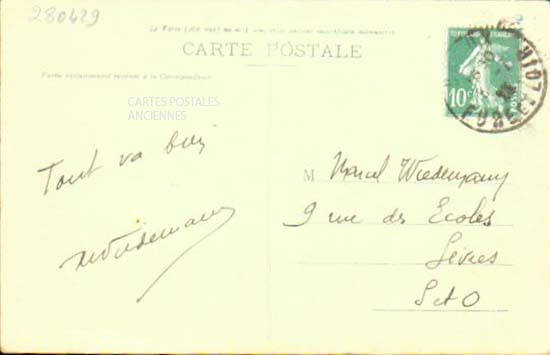 280429
CARTE POSTALE
Partie exclusivement réservée à la Correspondance
CARTES POSTALES
ANCIENNES
Tout va bien
Wiedemann
M Marcel Wiedemann
9 rue des Ecoles
Sèvres
S et O
REPUBLIQUE FRANÇAISE
10c
POSTES